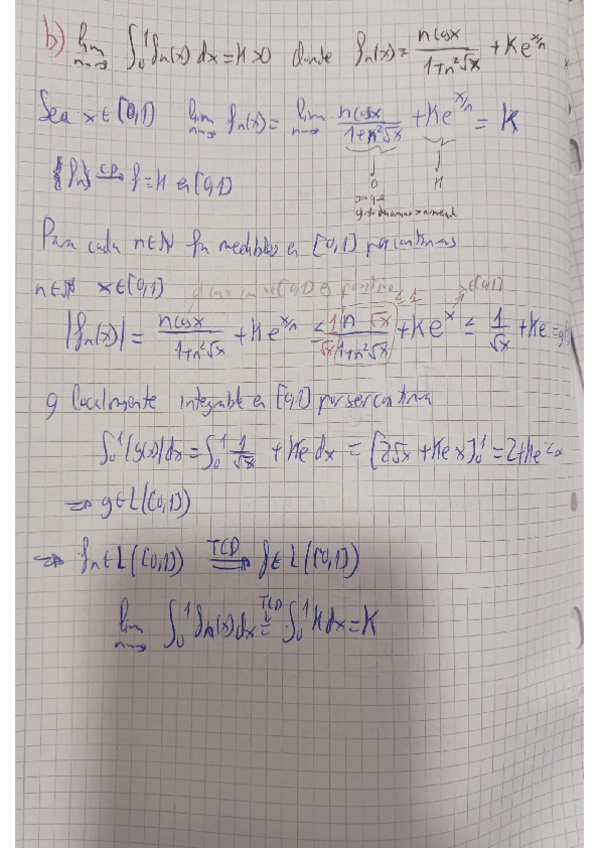 b) lim n→∞ ∫₀¹ fn(x) dx = K >0 donde fn(x) = n cosx / (1+n²√x) + Ke^(x/n)
Sea x∈(0,1) lim n→∞ fn(x) = lim n→∞ n cosx / (1+n²√x) + Ke^(x/n) = K
0 K
{fn} →CP f=K en (0,1)
Para cada n∈N fn medibles en [0,1] por continuas
n∈N x∈(0,1) cos en (0,1) es positivo ≤1 ∈(0,1)
|fn(x)| = n cosx / (1+n²√x) + Ke^(x/n) ≤ 1/√x n √x / (1+n²√x) + Ke^x ≤ 1/√x + Ke = g(x)
g localmente integrable en (0,1) por ser continua
∫₀¹ |g(x)| dx = ∫₀¹ 1/√x + Ke dx = [2√x + Ke x]₀¹ = 2+Ke <∞
⇒ g∈L((0,1))
⇒ fn∈L((0,1)) TCD ⟹ f∈L((0,1))
lim n→∞ ∫₀¹ fn(x) dx TCD = ∫₀¹ K dx = K